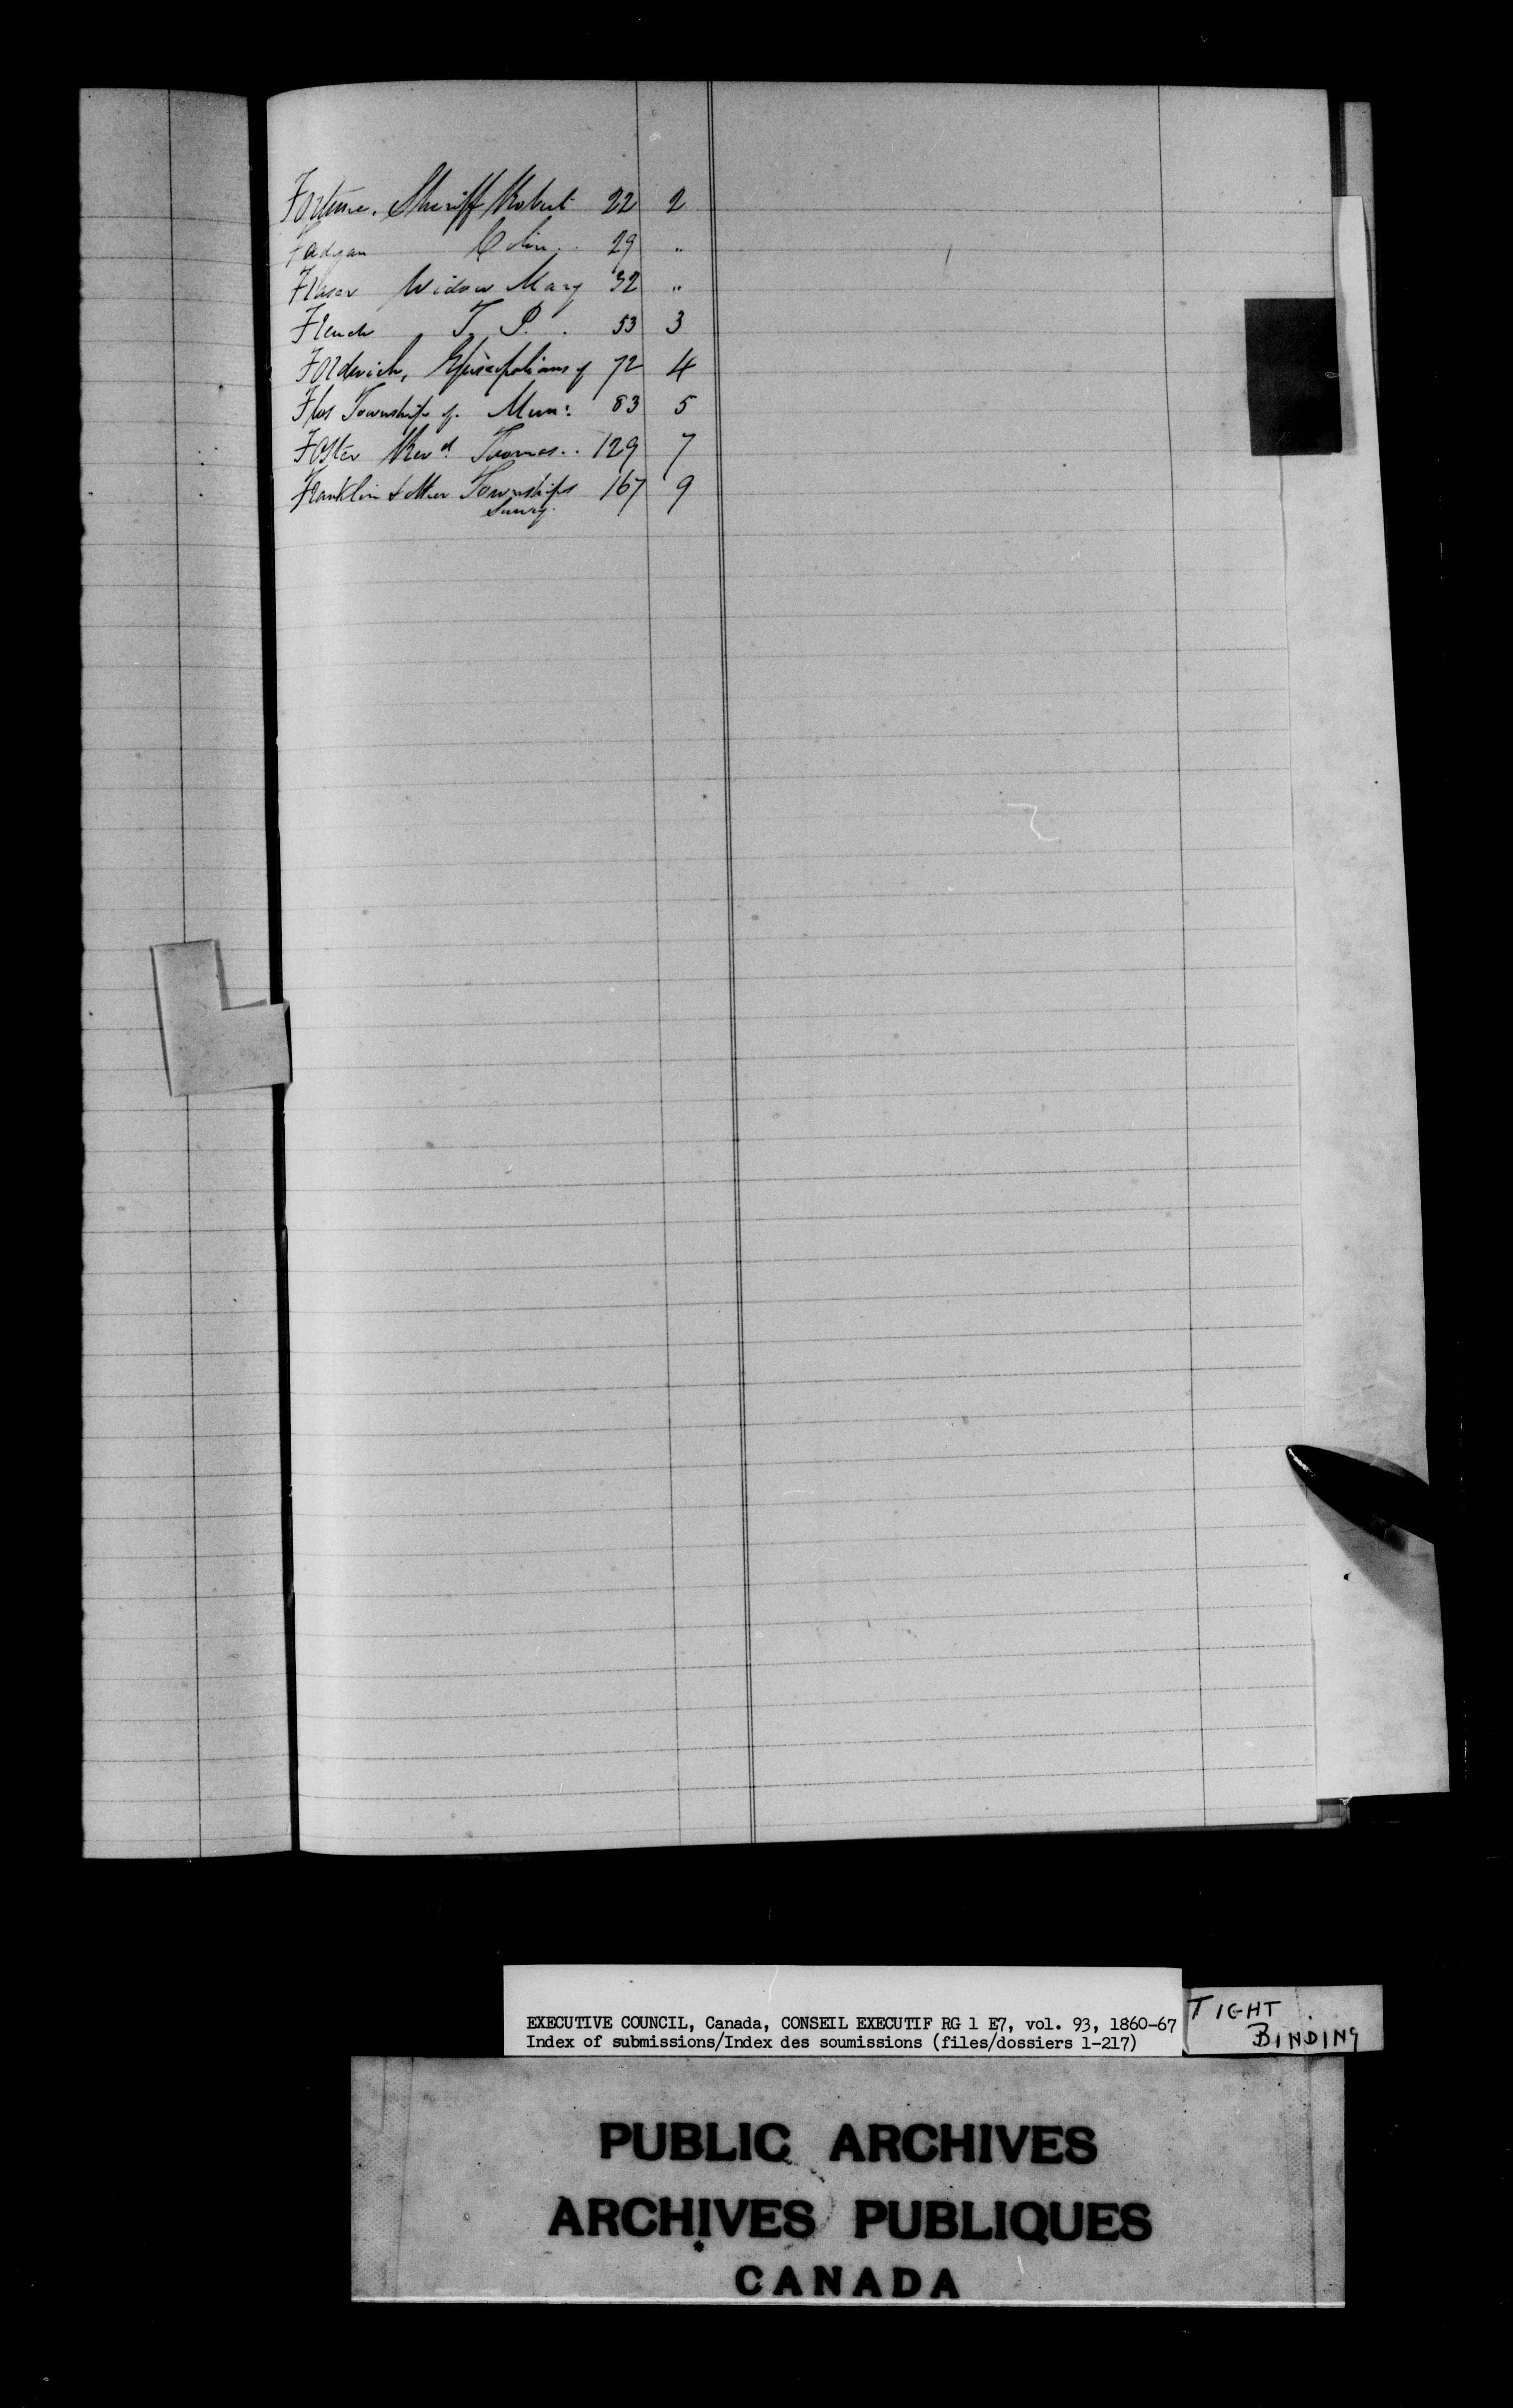 Fortune, Sheriff Robert 22 2
Fadyan Colin . . 29 "
Fraser Widow Mary 32 "
French T. P. . 53 3
Fordwich, Episcopalians of 72 4
Flos Township of. Mun: 83 5
Foster Revd. Thomas . . 129 7
Franklin & other Townships 167 9
Survey.
EXECUTIVE COUNCIL, Canada, CONSEIL EXECUTIF RG 1 E7, vol. 93, 1860-67
Index of submissions/Index des soumissions (files/dossiers 1-217)
TIGHT
BINDING
PUBLIC ARCHIVES
ARCHIVES PUBLIQUES
CANADA